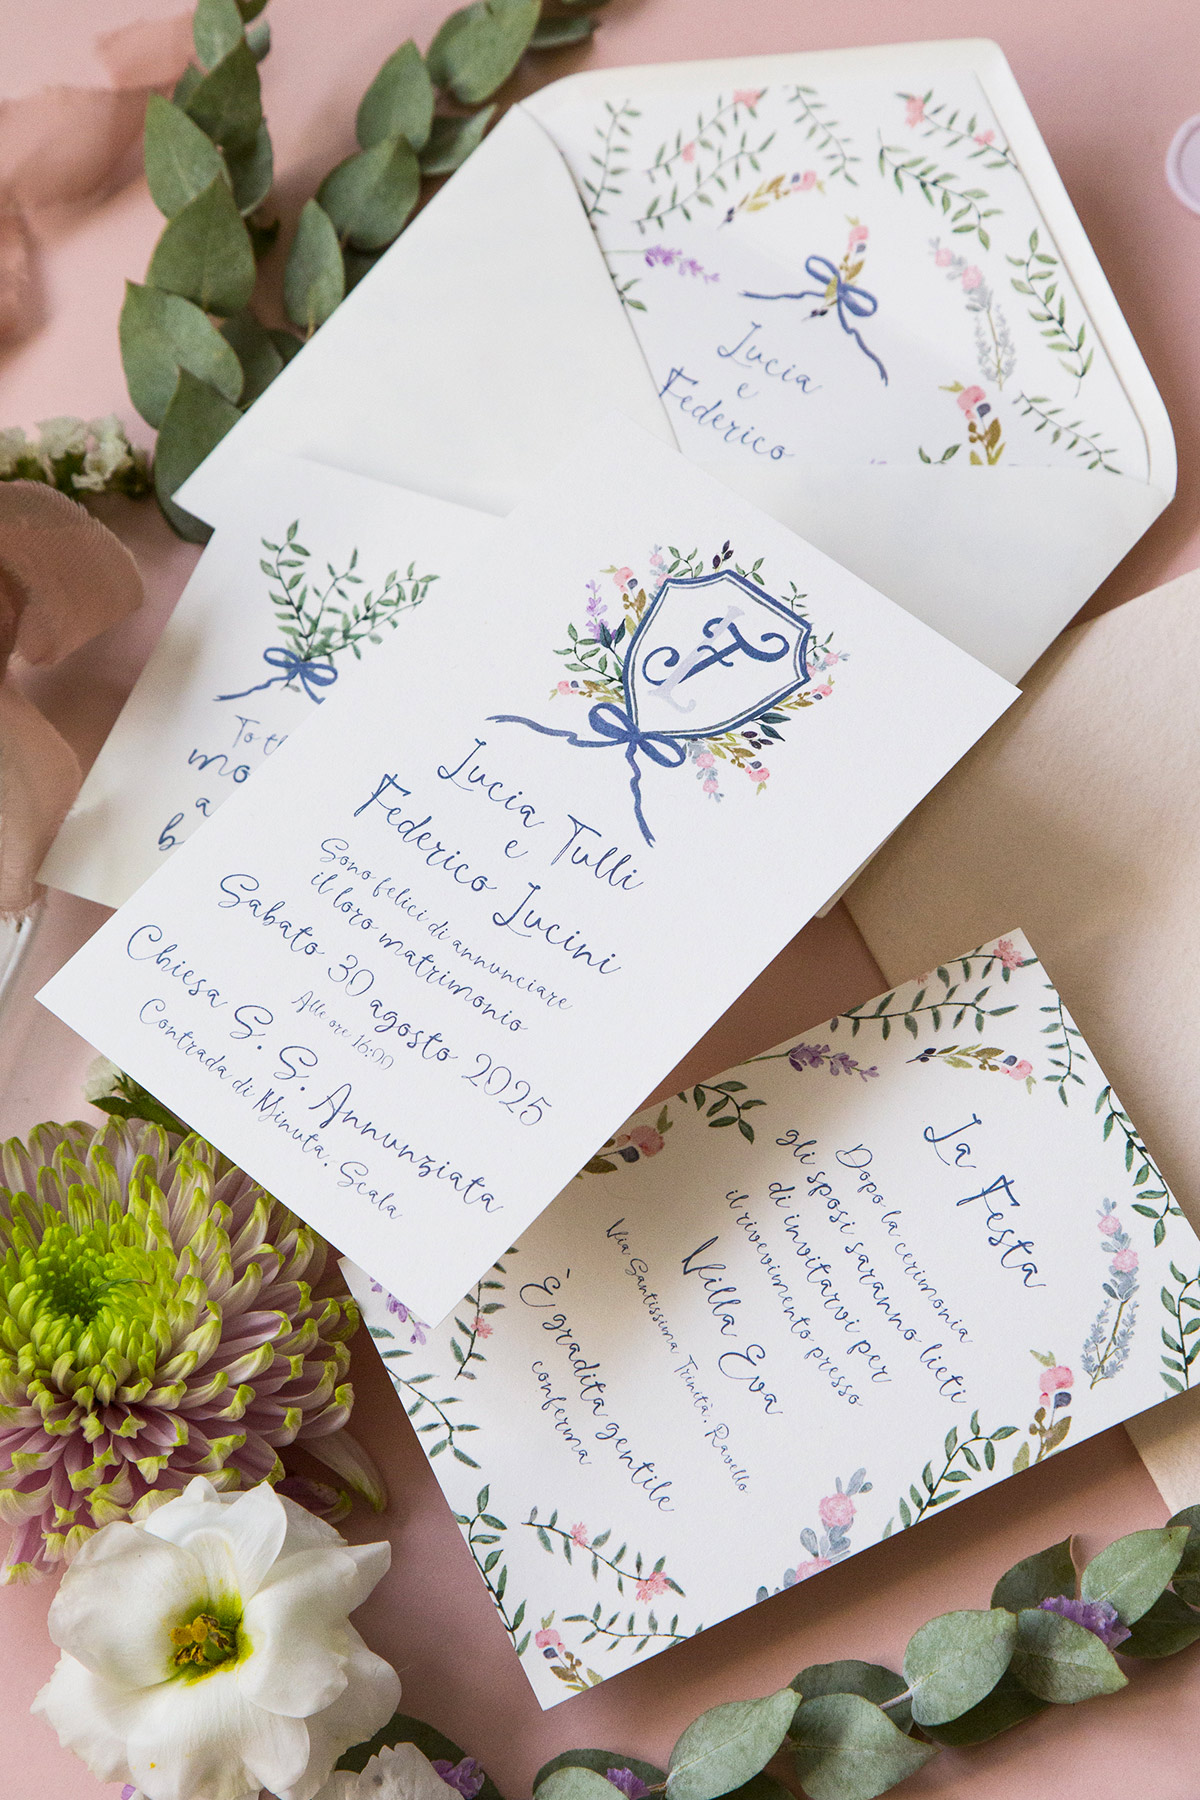 Lucia
e
Federico
To th
mo
a
b
Lucia Tulli
e
Federico Lucini
Sono felici di annunciare
il loro matrimonio
Sabato 30 agosto 2025
Alle ore 16:00
Chiesa S. S. Annunziata
Contrada di Minuta, Scala
La Festa
Dopo la cerimonia
gli sposi saranno lieti
di invitarvi per
il rivevimento presso
Villa Eva
Via Santissima Trinità, Ravello
È gradita gentile
conferma